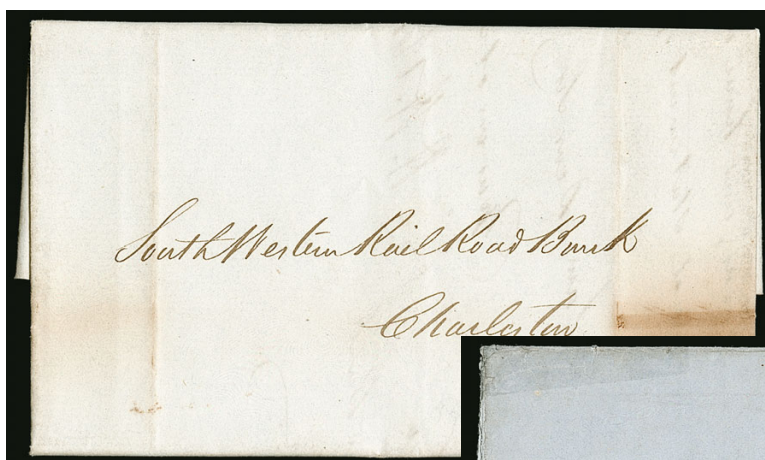 South Western Rail Road Bank
Charleston